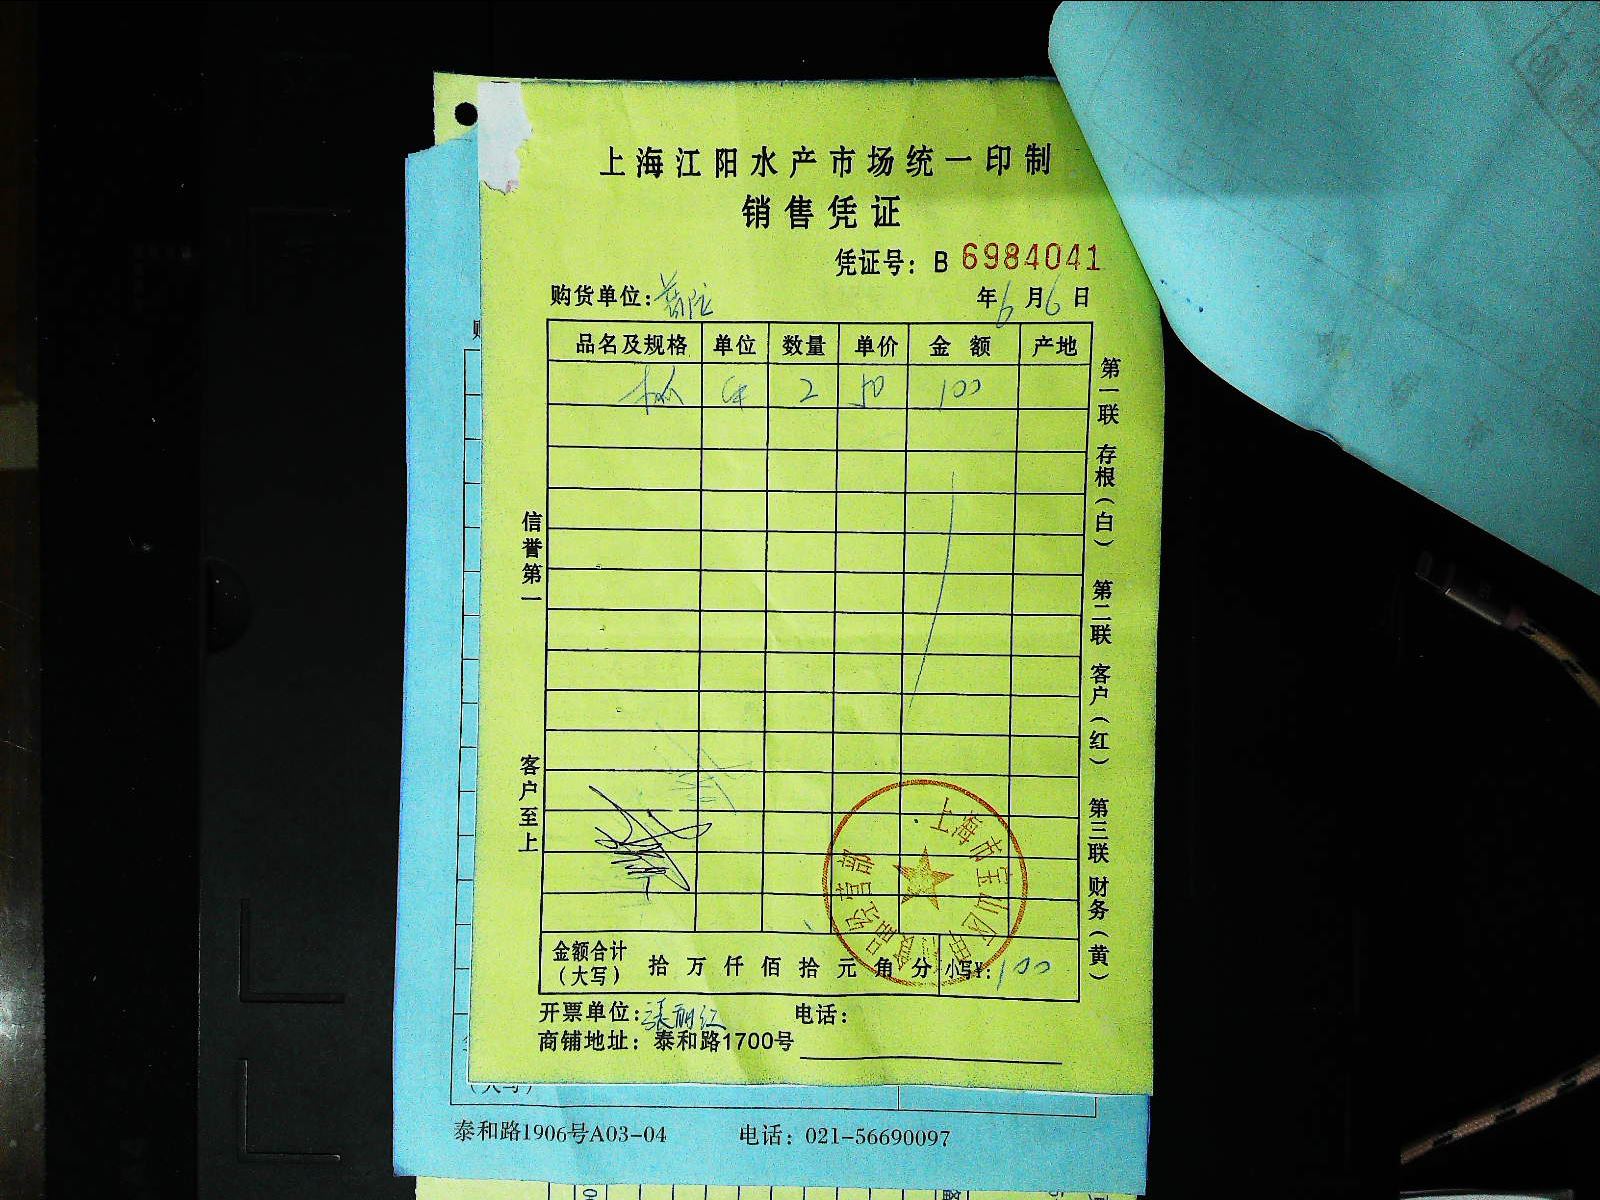 上海江阳水产市场统一印制
销售凭证
凭证号：B 6984041
购货单位：
年6月6日
品名及规格 单位 数量 单价 金额 产地
2 50 100
信誉第一
客户至上
第一联 存根（白） 第二联 客户（红） 第三联 财务（黄）
上海市宝山区 品经营部
金额合计（大写） 拾 万 仟 佰 拾 元 角 分 小写¥：100
开票单位：张丽红 电话：
商铺地址：泰和路1700号
（大写）
泰和路1906号A03-04 电话：021-56690097